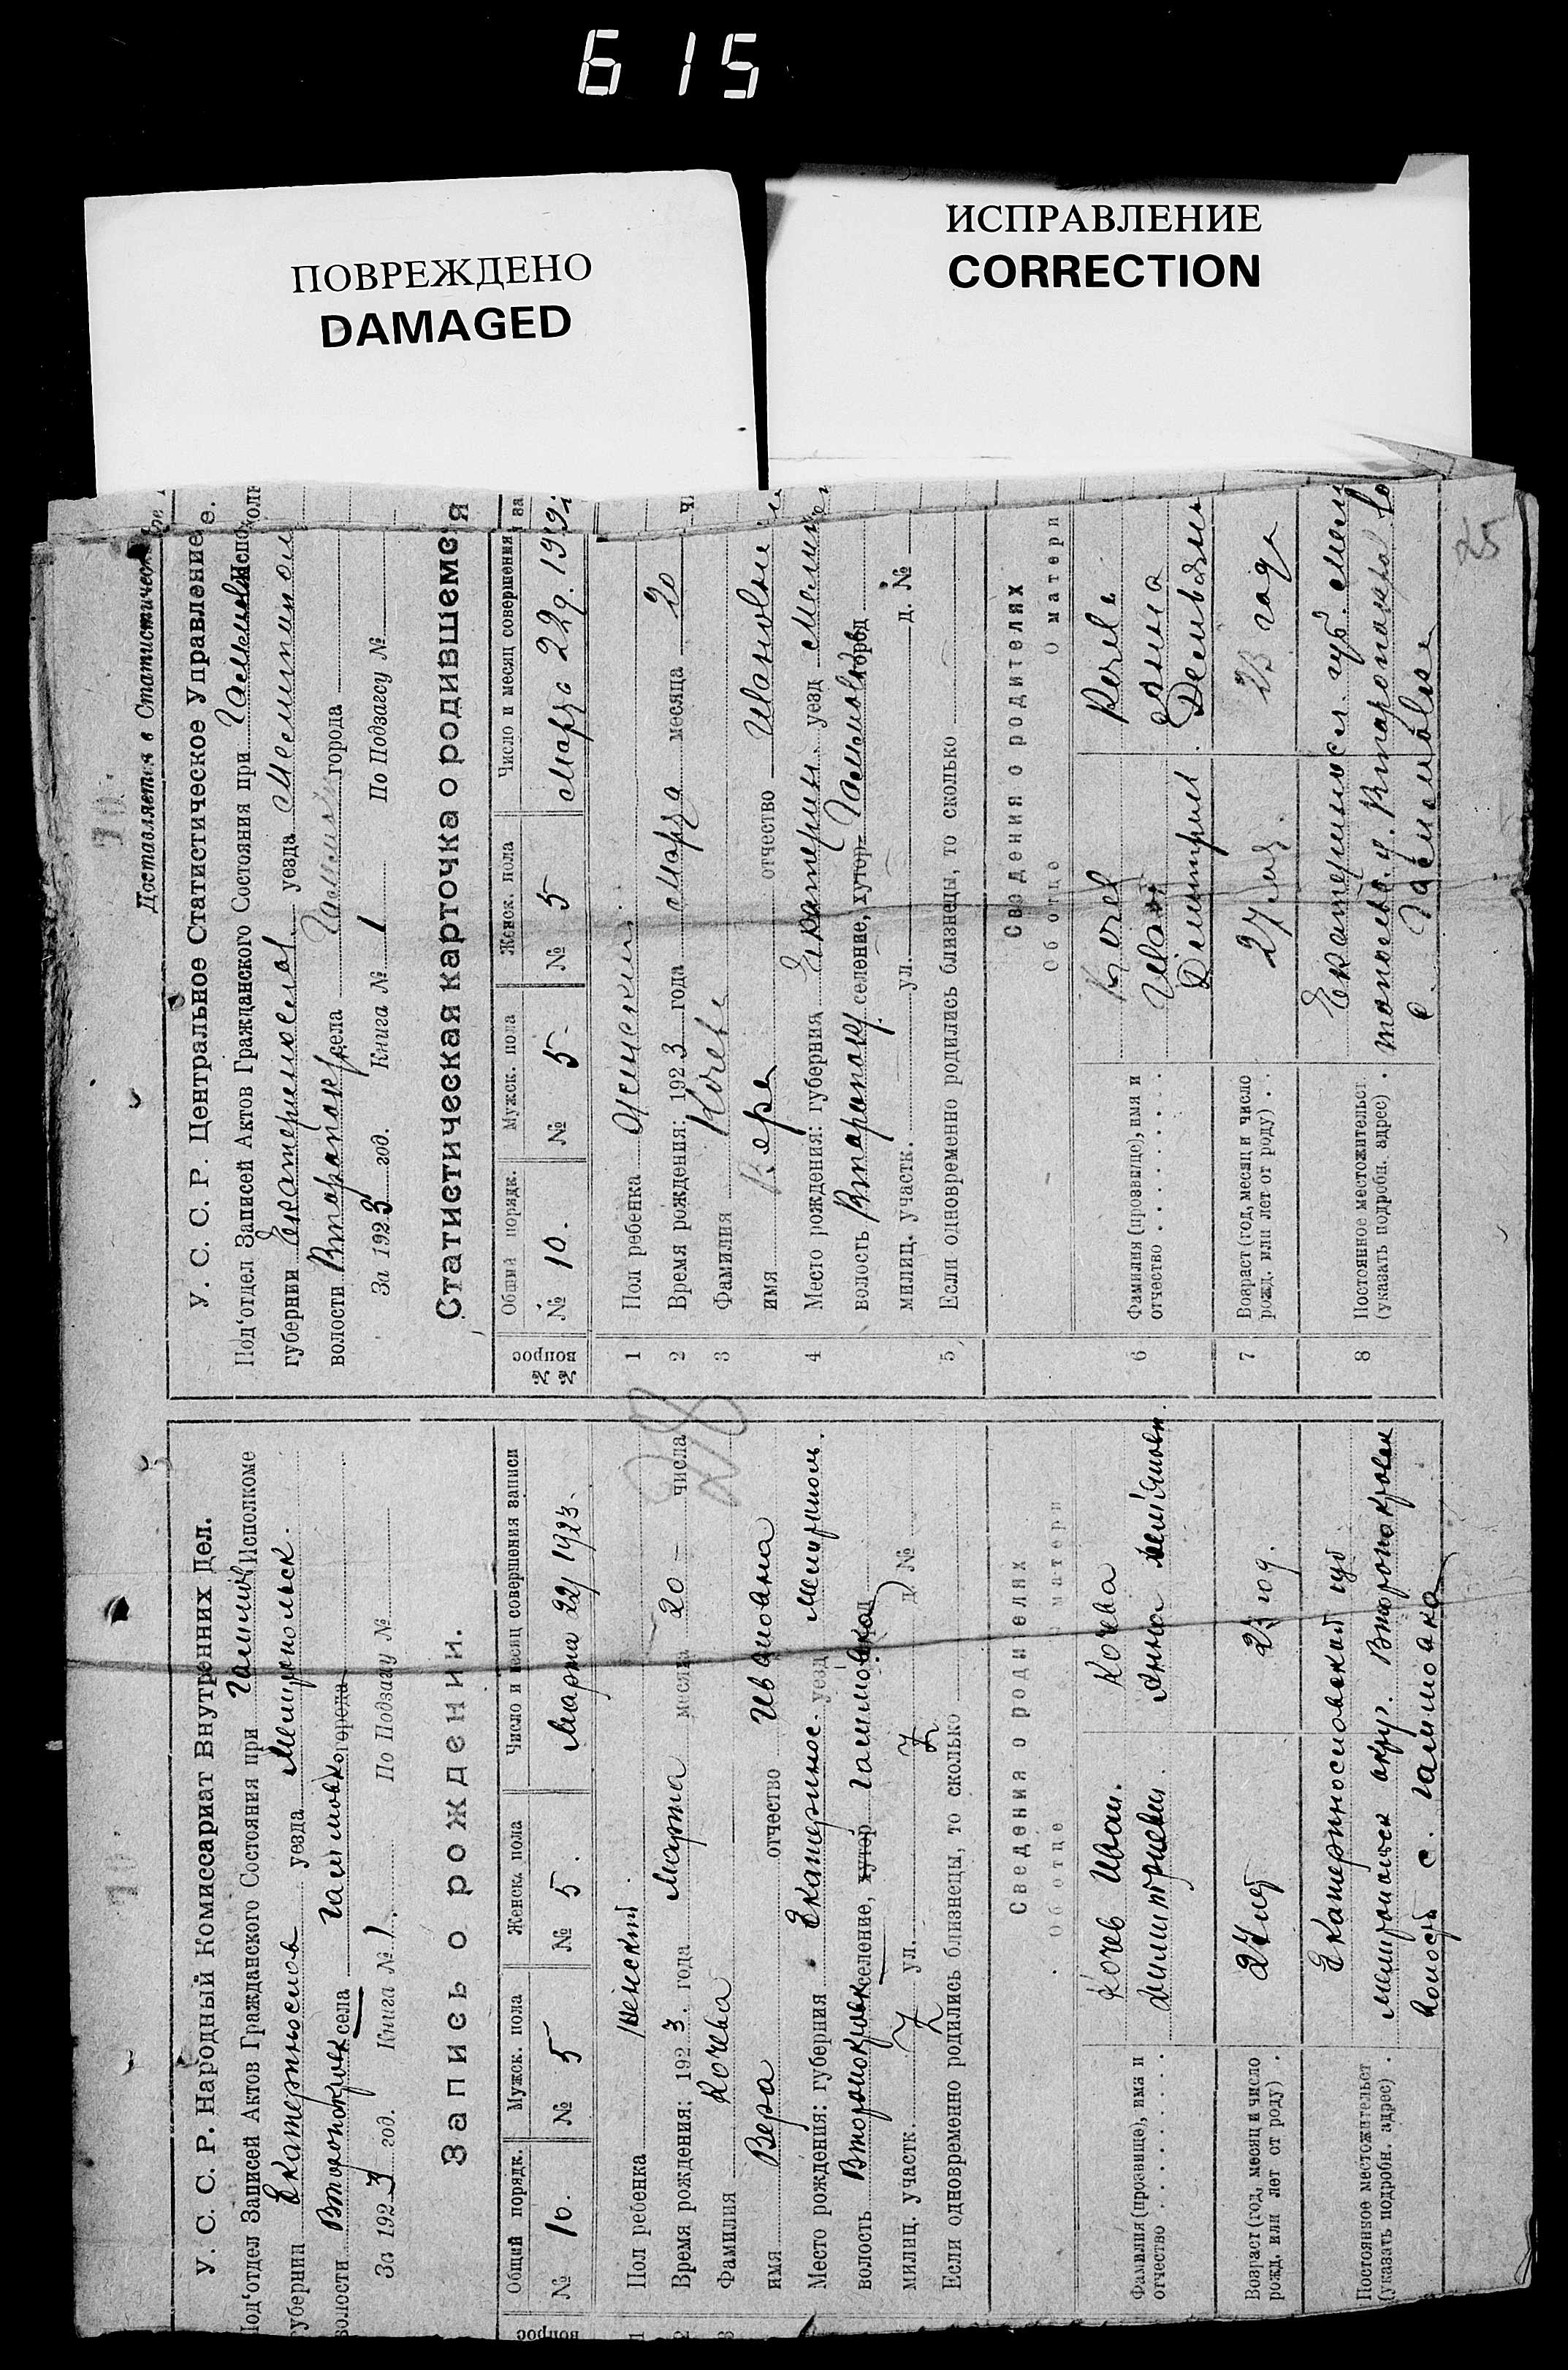 615
ПОВРЕЖДЕНО
DAMAGED
ИСПРАВЛЕНИЕ
CORRECTION
70.
У. С. С. Р. Народный Комиссариат Внутренних Дел.
Под'отдел Записей Актов Гражданского Состояния при Гаммов Исполкоме
губернии Екатеринослав уезда Мелитопольск.
волости Второпокровск села Гаммовко города
За 1923 год. Книга № 1. По Подзагу №
Запись о рождении.
вопрос
Общий порядк. Мужск. пола Женск. пола Число и месяц совершения записи
№ 10. № 5 № 5. Марта 22/1923.
1 Пол ребенка женский.
2 Время рождения: 1923. года марта месяца 20 числа
3 Фамилия Кочева
имя Вера отчество Ивановна
Место рождения: губерния Екатеринос. уезд Мелитопол.
волость Второпокровск селение, хутор Гаммовка
милиц. участк. ул. д. №
Если одновременно родились близнецы, то сколько
Сведения о родителях
Об отце О матери
Фамилия (прозвище), имя и отчество Кочев Иван. Дмитриевич. Кочева Анна
Возраст (год, месяц и число рожд. или лет от роду) 27 лет 23 год.
Постоянное местожительст (указать подробн. адрес) Екатеринославской губ
мелитопольск округ. Второпокровск
волость с. Гаммовка
28
70.
Доставляется в Статистическ
У. С. С. Р. Центральное Статистическое Управление.
Под'отдел Записей Актов Гражданского Состояния при Исполк
губернии Екатеринослав. уезда Мелитопол
волости Второпокр села города
За 1923 год. Книга № 1 По Подзагсу №
Статистическая карточка о родившемся
№№ вопрос
Общий порядк. Мужск. пола Женск. пола Число и месяц совершения за
№ 10. № 5 № 5 Марта 22 д. 192
1 Пол ребенка Женский.
2 Время рождения: 1923 года Марта месяца 20 ч
3 Фамилия Кочева
имя Вера отчество Ивановн
4 Место рождения: губерния Екатерин. уезд Мелит
волость Второпокр селение, хутор город
милиц. участк. ул. д. №
5 Если одновременно родились близнецы, то сколько
Сведения о родителях
Об отце О матери
6 Фамилия (прозвище), имя и отчество Кочев Иван Дмитриев Кочева Анна Демьян
7 Возраст (год, месяц и число рожд. или лет от роду) 27 лет. 23 года
8 Постоянное местожительст (указать подробн. адрес) Екатериносл. губ. Мели
топольс. у. Второпокро во
с. Гаммовка
25